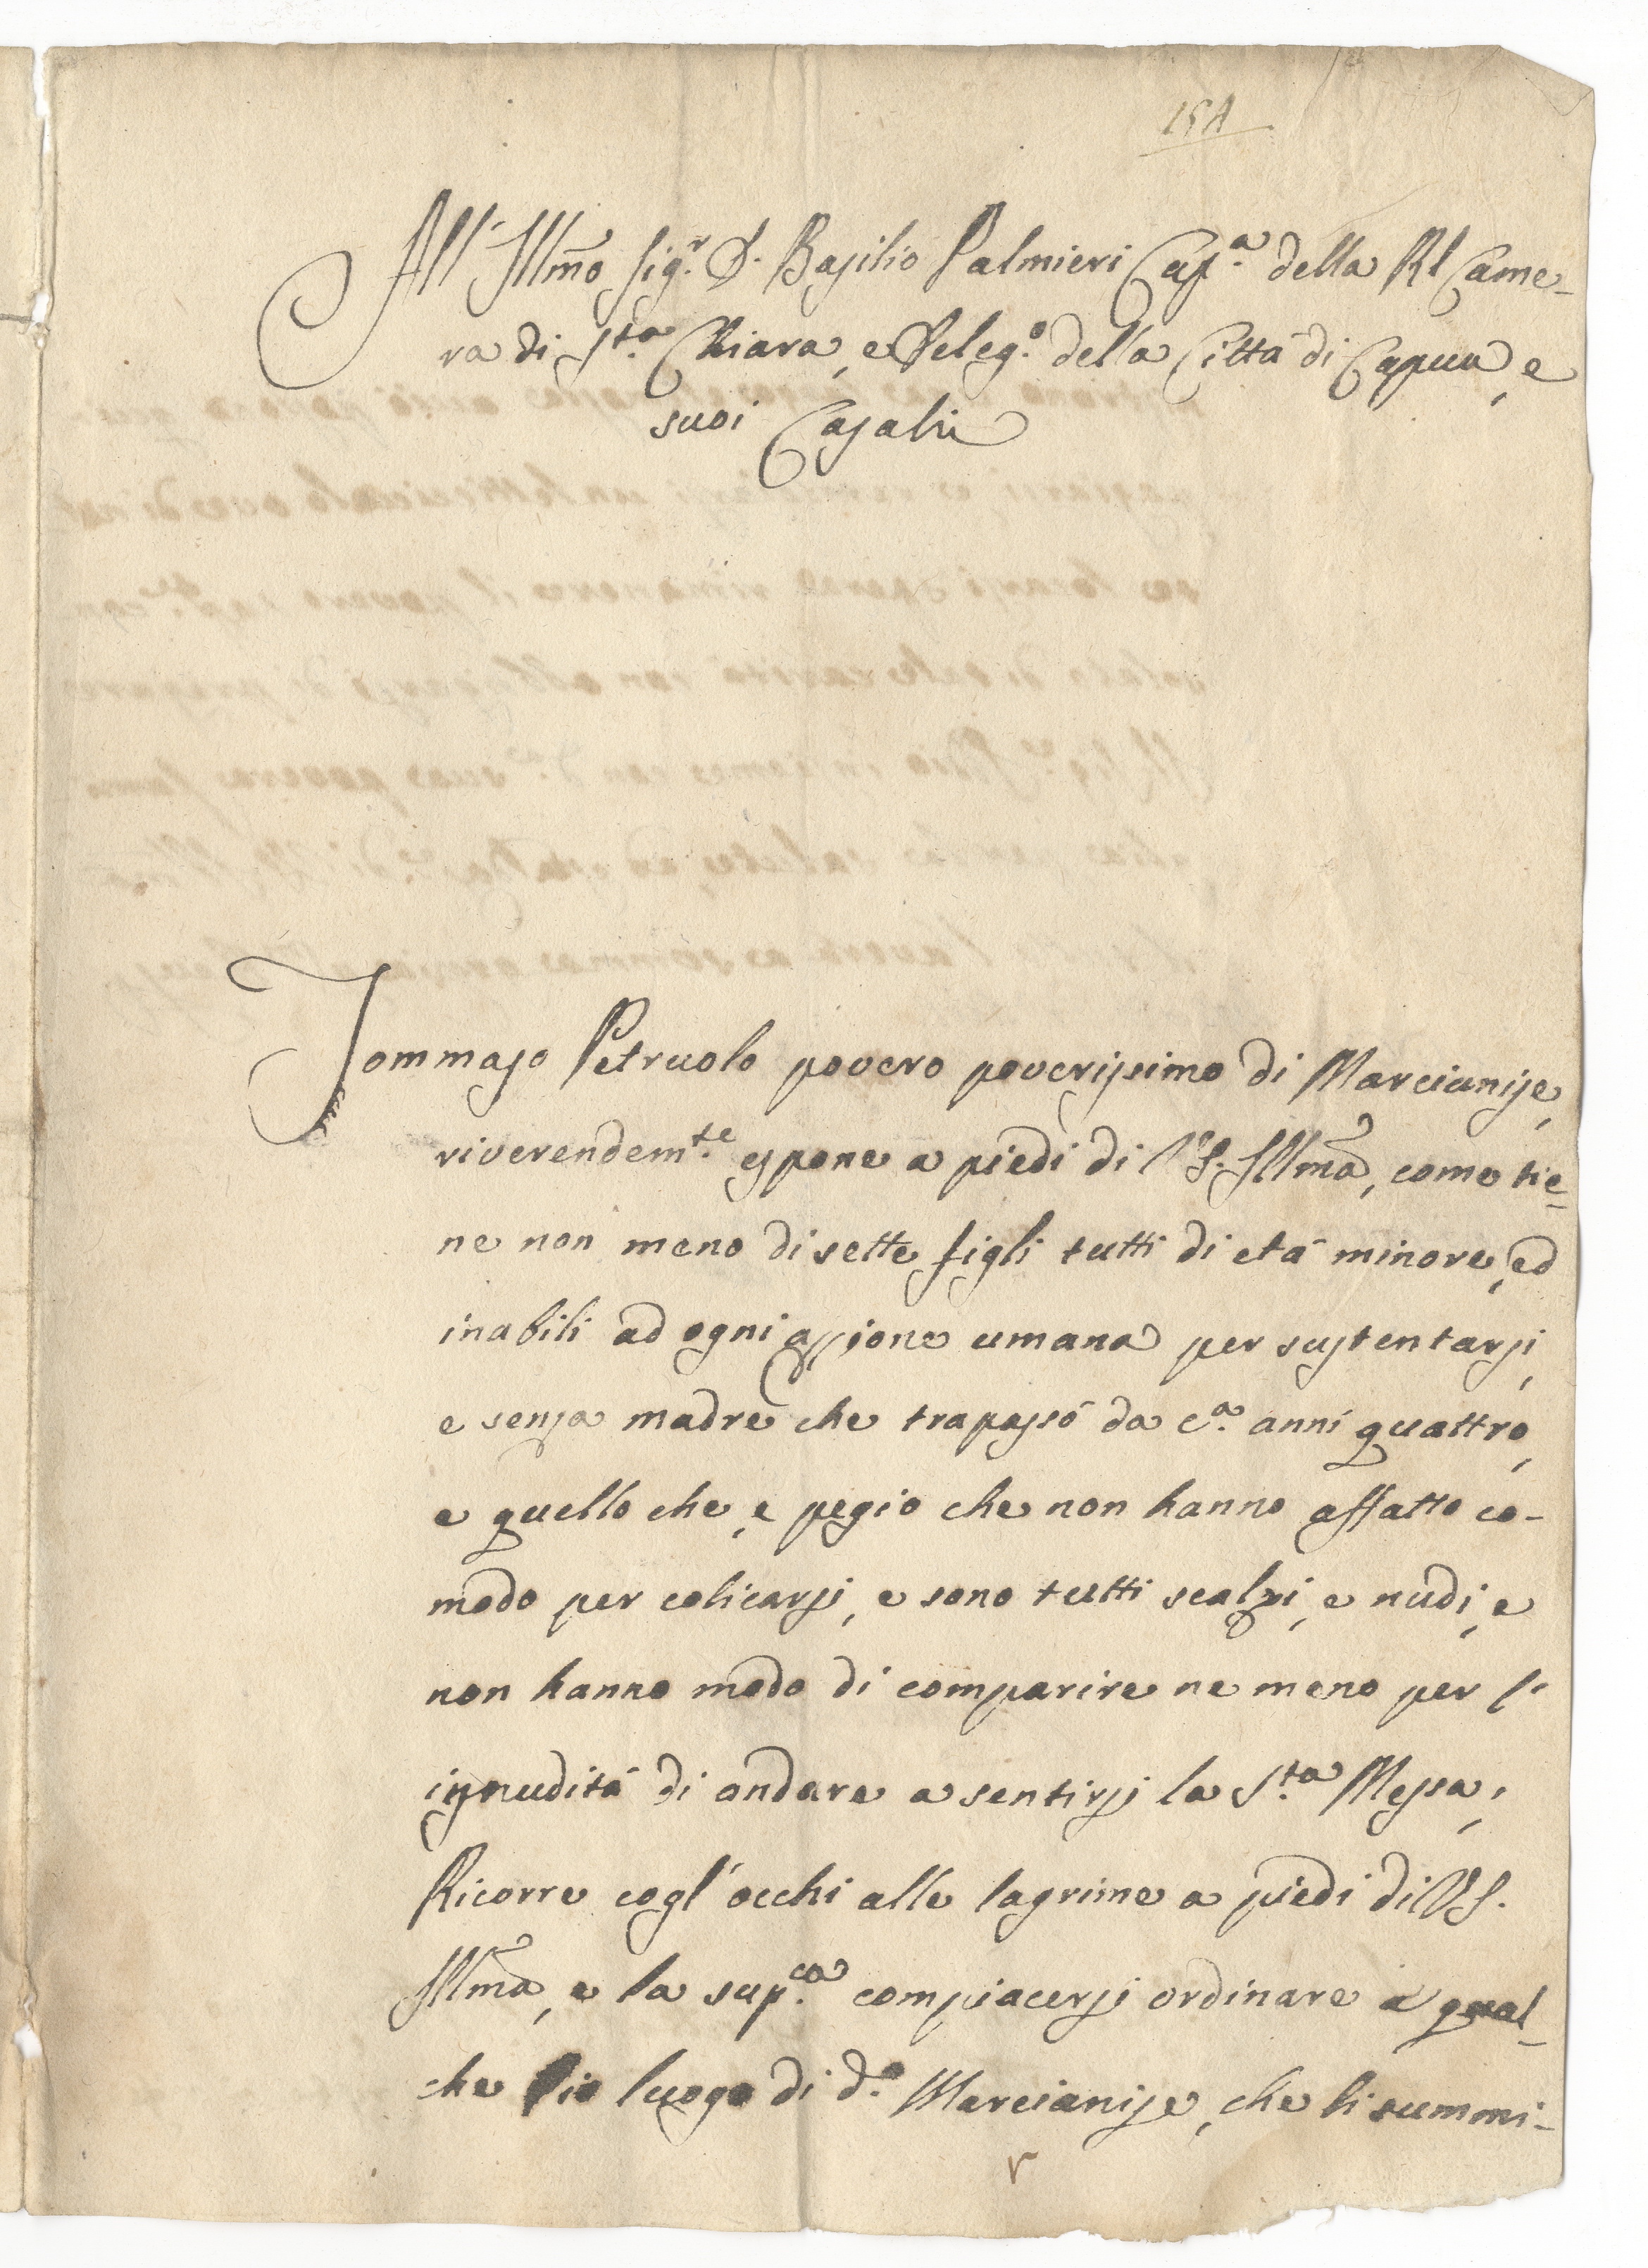 All' Illmo Sigr. D. Basilio Palmieri Cap.a della Rl Came-
ra di S.ta Chiara, e Deleg.o della Città di Capua, e
suoi Casali
Tommaso Petruolo povero poverissimo di Marcianise,
riverendem.te espone a piedi di V.S. Illma, come tie-
ne non meno di sette figli tutti di età minore, ed
inabili ad ogni azzione umana per sustentarsi,
e senza madre che trapassò da c.a anni quattro,
e quello che, e pegio che non hanno affatto co-
modo per colicarsi, e sono tutti scalzi, e nudi, e
non hanno modo di comparire ne meno per l'
ignudità di andare a sentirsi la S.ta Messa,
Ricorre cogl'occhi alle lagrime a piedi di V.S.
Illma, e la sup.ca compiacersi ordinare a qual-
che Pio luogo di d.o Marcianise, che li summi-